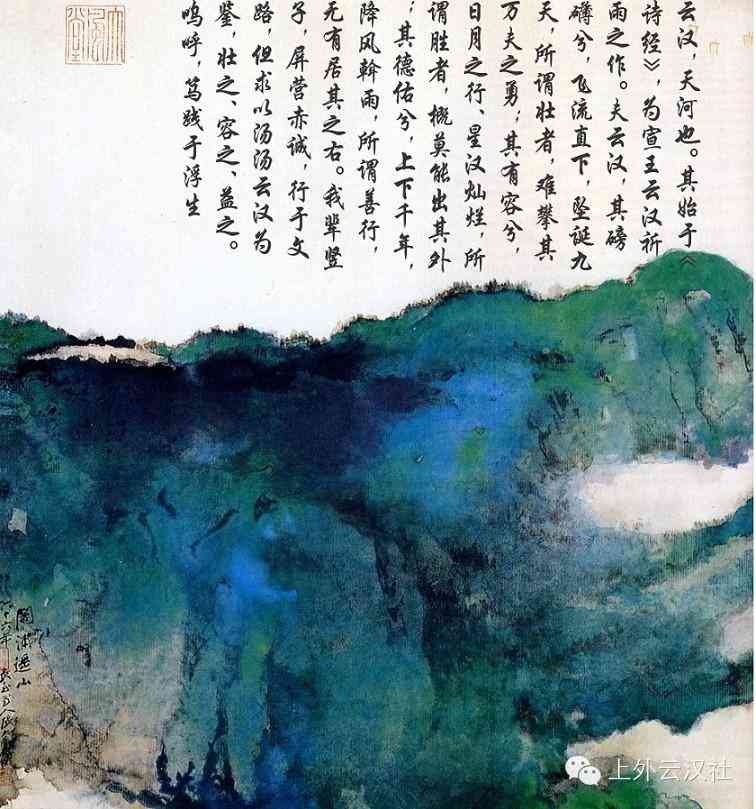 云汉，天河也。其始于《
诗经》，为宣王云汉祈
雨之作。夫云汉，其磅
礴兮，飞流直下，坠诞九
天，所谓壮者，难攀其
万夫之勇；其有容兮，
日月之行、星汉灿烂，所
谓胜者，概莫能出其外
；其德佑兮，上下千年，
降风斡雨，所谓善行，
无有居其之右。我辈竖
子，屏营赤诚，行于文
路，但求以汤汤云汉为
鉴，壮之、容之、益之。
呜呼，笃践于浮生
大风堂
上外云汉社